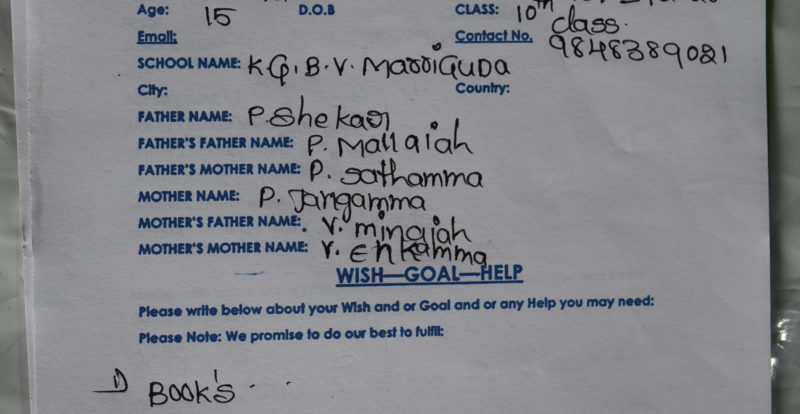 Age: 15 D.O.B CLASS: 10th class.
Email: Contact No. 9848389021
SCHOOL NAME: K.G.B.V. MarriGUDA
City: Country:
FATHER NAME: P. Shekar
FATHER'S FATHER NAME: P. Mallaiah
FATHER'S MOTHER NAME: P. Sathamma
MOTHER NAME: P. Jangamma
MOTHER'S FATHER NAME: Y. minaiah
MOTHER'S MOTHER NAME: Y. Enkamma
WISH—GOAL—HELP
Please write below about your Wish and or Goal and or any Help you may need:
Please Note: We promise to do our best to fulfil:
1) BOOK's